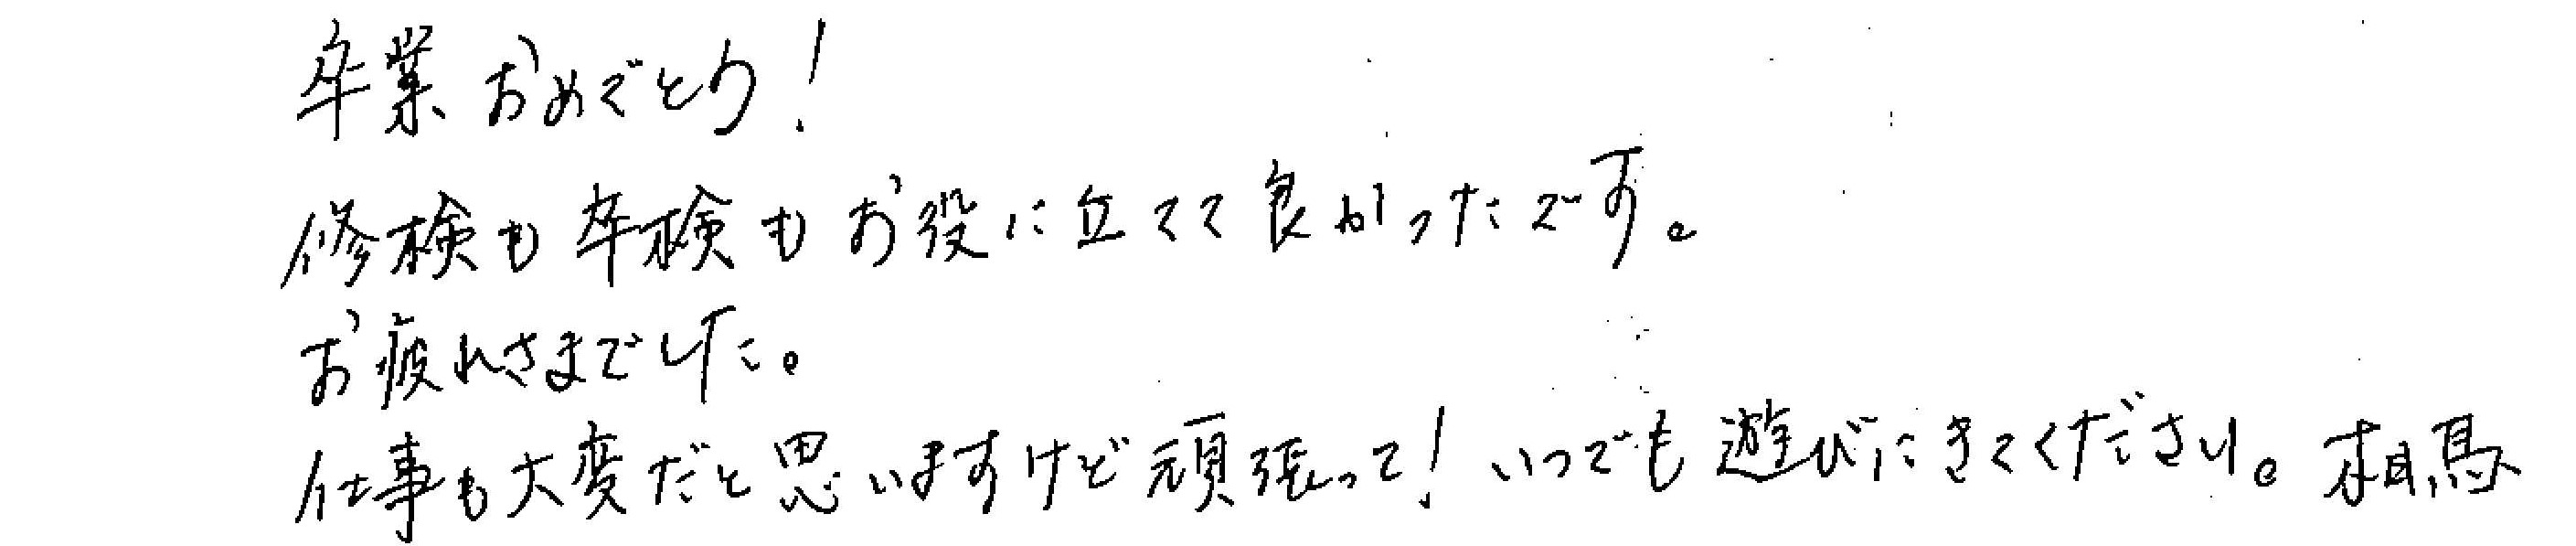 卒業おめでとう!
修検も卒検もお役に立てて良かったです。
お疲れさまでした。
仕事も大変だと思いますけど頑張って!いつでも遊びにきてください。相馬